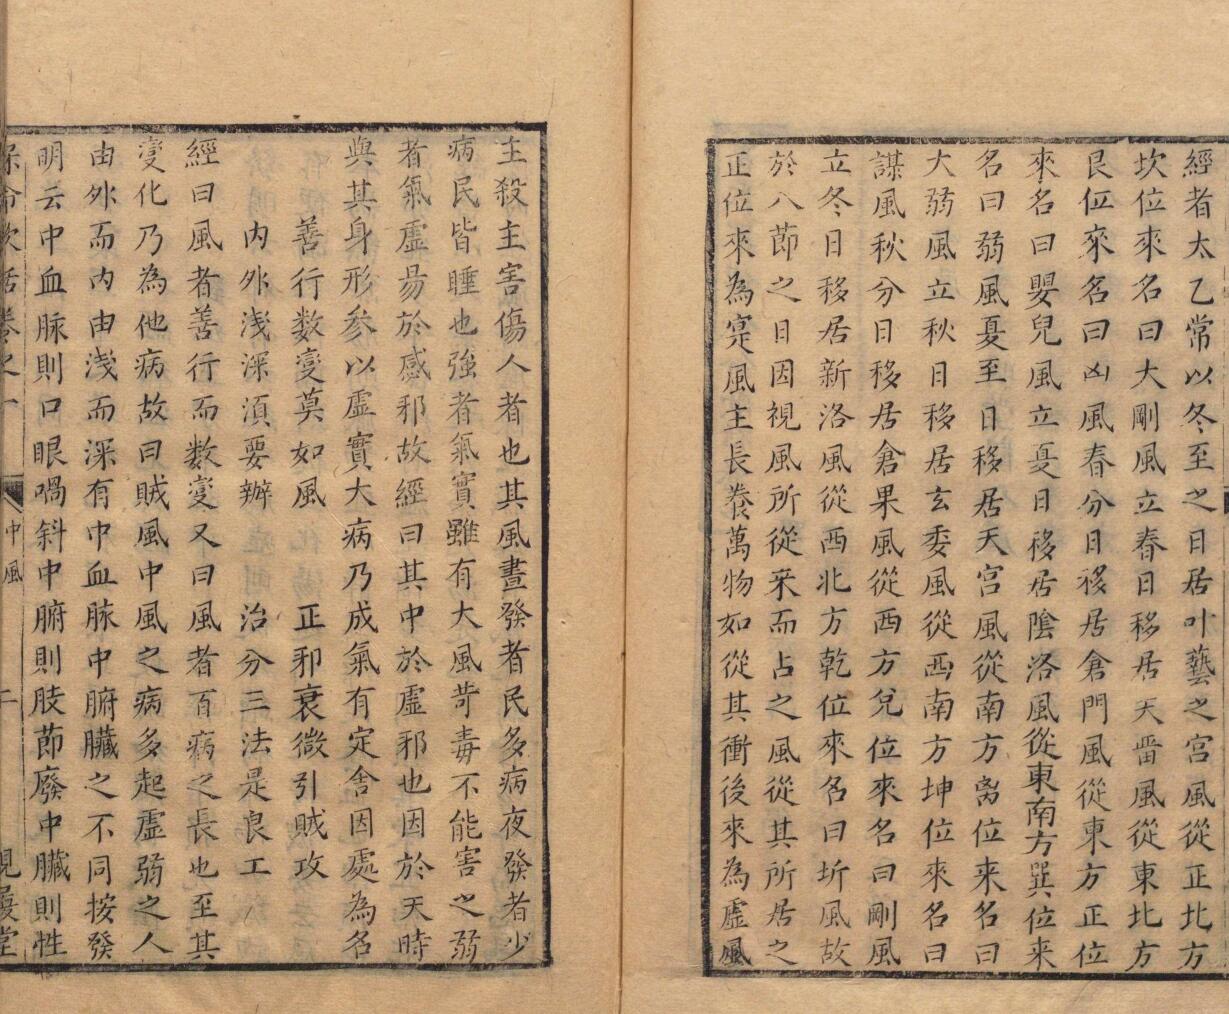 經者太乙常以冬至之日居叶蟄之宮風從正北方
坎位來名曰大剛風立春日移居天畱風從東北方
艮位來名曰凶風春分日移居倉門風從東方正位
來名曰嬰兒風立夏日移居陰洛風從東南方巽位来
名曰弱風夏至日移居天宮風從南方离位来名曰
大弱風立秋日移居玄委風從西南方坤位來名曰
謀風秋分日移居倉果風從西方兌位來名曰剛風
立冬日移居新洛風從西北方乾位來名曰圻風故
於八節之日因視風所從来而占之風從其所居之
正位來為寔風主長養萬物如從其衝後來為虛風
主殺主害傷人者也其風晝發者民多病夜發者少
病民皆睡也強者氣實雖有大風苛毒不能害之弱
者氣虛昜於感邪故經曰其中於虛邪也因於天時
與其身形參以虛實大病乃成氣有定舍因處為名
善行数變莫如風 正邪衰微引賊攻
內外淺深湏要辦 治分三法是良工
經曰風者善行而数變又曰風者百病之長也至其
變化乃為他病故曰賊風中風之病多起虛弱之人
由外而內由淺而深有中血脉中腑臟之不同按發
明云中血脉則口眼喎斜中腑則肢節廢中臟則性
保命歌括卷之一 中風 二 視履堂